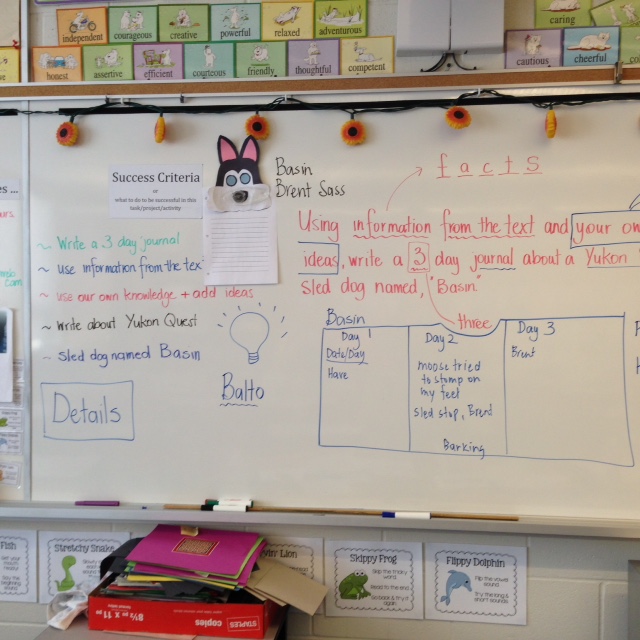 independent
courageous
creative
powerful
relaxed
adventurous
caring
honest
assertive
efficient
courteous
friendly
thoughtful
competent
cautious
cheerful
Success Criteria
or
what to do to be successful in this
task/project/activity
Basin
Brent Sass
facts
Using information from the text and your own
ideas, write a 3 day journal about a Yukon
sled dog named, "Basin"
three
~ Write a 3 day journal
~ use information from the tex
~ use our own knowledge + add ideas
~ Write about Yukon Quest
~ sled dog named Basin
Details
Balto
Basin
Day 1
Date/Day
Have
Day 2
moose tried
to stomp on
my feet
sled stop, Brent
Barking
Day 3
Brent
Fish
Stretchy Snake
Lion
Skippy Frog
Skip the tricky
word.
Read to the end.
Go back & try it
again.
Flippy Dolphin
Flip the vowel
sound.
Try the long &
short sounds.
8½ x 11
copies
STAPLES